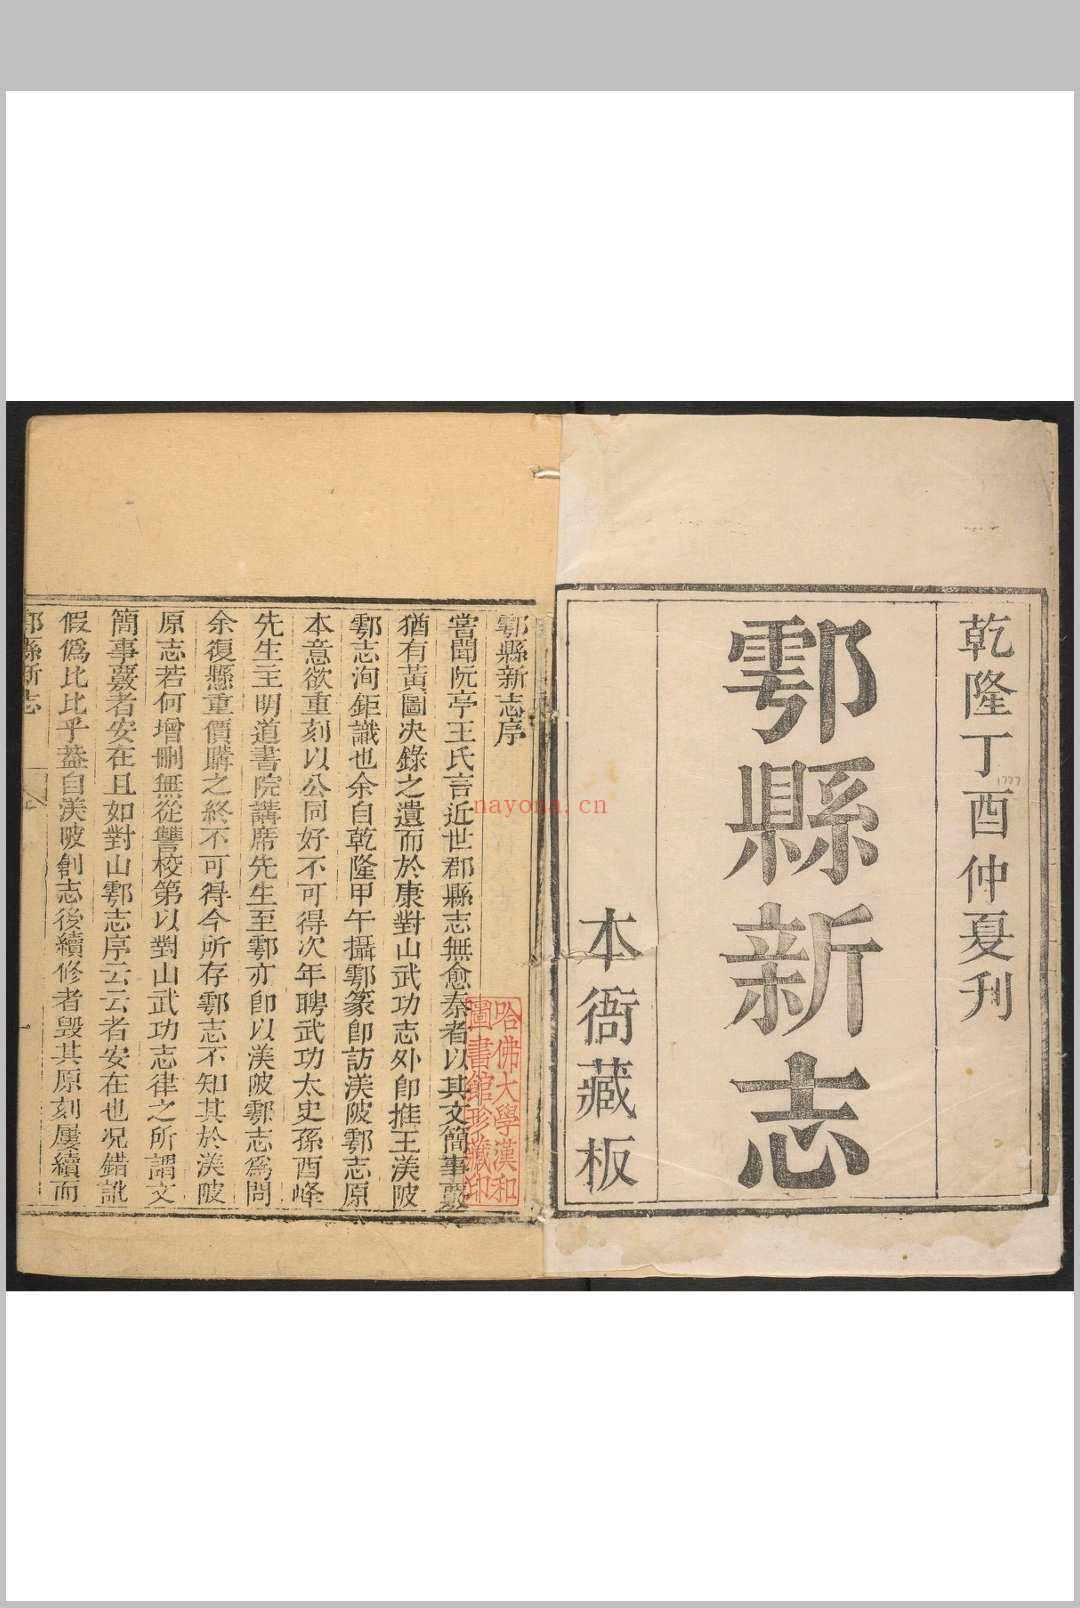 乾隆丁酉仲夏刋
1777
鄠縣新志
本衙藏板
鄠縣新志序
嘗聞阮亭王氏言近世郡縣志無愈秦者以其文簡事覈
猶有黃圖决錄之遺而於康對山武功志外卽推王渼陂
鄠志洵鉅識也余自乾隆甲午攝鄠篆卽訪渼陂鄠志原
本意欲重刻以公同好不可得次年聘武功太史孫酉峰
先生主明道書院講席先生至鄠亦卽以渼陂鄠志爲問
余復懸重價購之終不可得今所存鄠志不知其於渼陂
原志若何增刪無從讐校第以對山武功志律之所謂文
簡事覈者安在且如對山鄠志序云云者安在也况錯訛
假僞比比乎葢自渼陂創志後續修者毁其原刻屢續而
鄠縣新志
哈佛大學漢和
圖書館珍藏印
nayona.cn